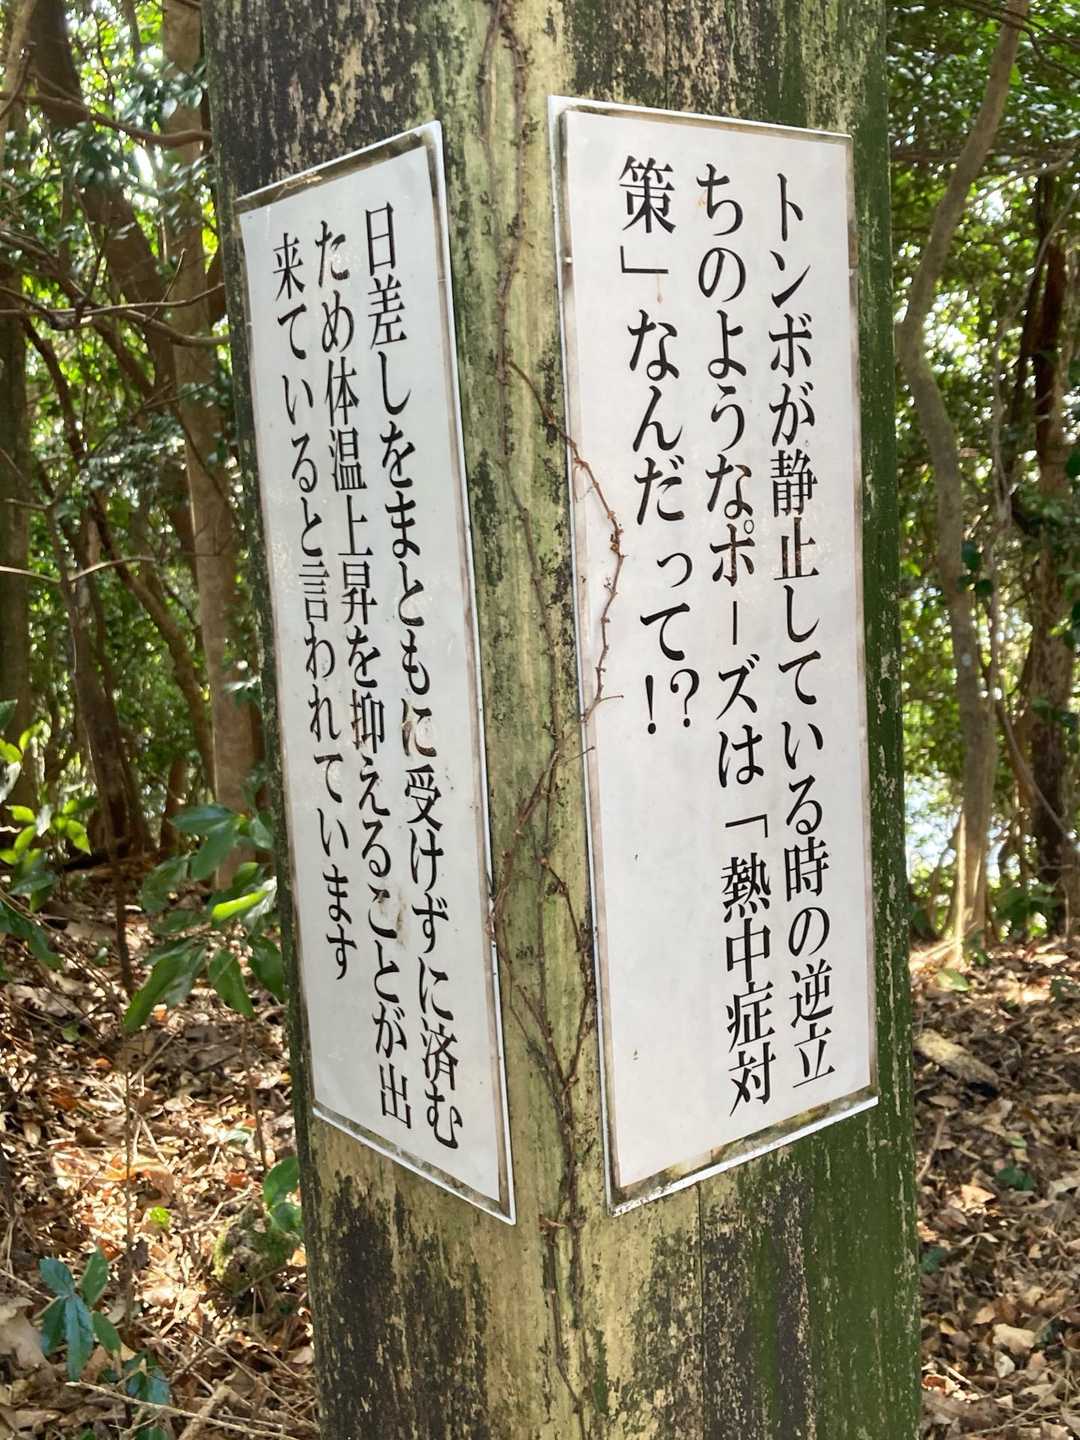 トンボが静止している時の逆立
ちのようなポーズは「熱中症対
策」なんだって!?
日差しをまともに受けずに済む
ため体温上昇を抑えることが出
来ていると言われています